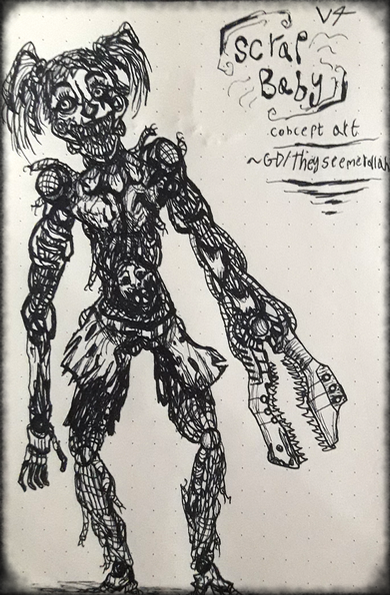 V4
Scrap
Baby
concept art
~GD/Theyseemerollah